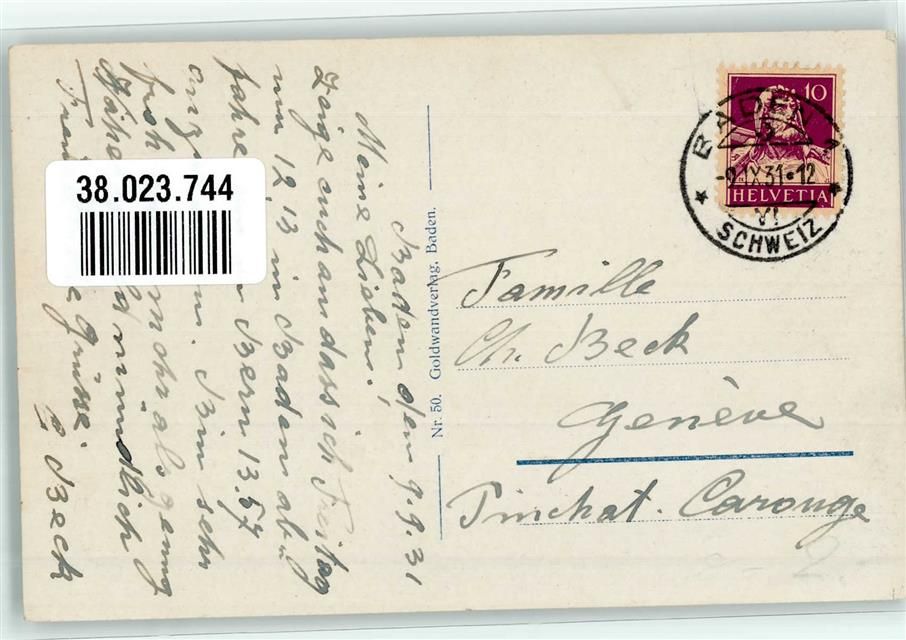 Baden, den 9.9.31
Meine Lieben!
Zeige euch an dass ich Freitag
nun 12,13 in Baden ab u
fahre Bern 13.57
an Bin sehr
froh genug
Nähe mündlich
Grüsse.
Beck
38.023.744
Nr. 50. Goldwandverlag, Baden.
10
HELVETIA
BADEN 1
-9.IX.31-12
VI
SCHWEIZ
Famille
Ch. Beck
Genève
Pinchat. Carouge